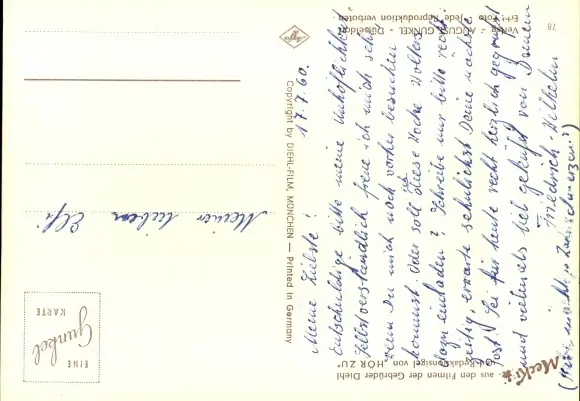 17.7.60.
Meine Liebste!
Entschuldige bitte meine Unhöflichkeit.
Selbstverständlich freue ich mich sehr,
wenn Du mich noch vorher besuchen
kommst. Oder soll ich diese Woche Wolters
dazu einladen? Schreibe nur bitte recht-
zeitig, erwarte sehnlichst Deine nächste
Post! Sei für heute recht herzlich gegrüßt
und vielmals geküßt von Deinem
Friedrich-Wilhelm
Meiner lieben Elfi
EINE
Gunkel
KARTE
Agfa
Copyright by DIEHL-FILM, MÜNCHEN — Printed in Germany
78
Verlag AUGUST GUNKEL - Düsseldorf
Foto Jede Reproduktion verboten
Mecki
aus den Filmen der Gebrüder Diehl
Redaktionsigel von "HÖR ZU"